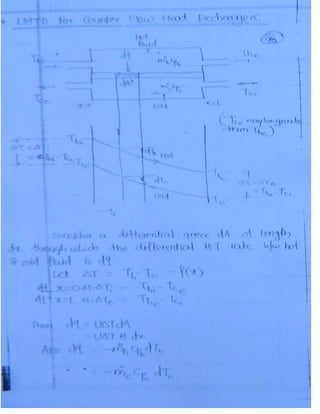 LMTD For Counter Flow Heat Exchangers:
Hot
fluid
dq
Thi
The
ṁh Cph
dA
ṁc Cpc
Tce
Tci
x=0
x=L
cold
(Tce may be greater
than The)
Thi
Hot
dTc
The
Tce
cold
Tci
Consider a differential area dA of length
dx through which the differential H.T rate b/w hot
& cold fluid is dq
Let ΔT = Th - Tc = f(x)
At x=0 ΔT = ΔTi = Thi - Tce
At x=L ΔTe = The - Tci
Then dq = UΔTdA
= UΔT B dx
Also dq = -ṁh Cph dTh
= -ṁc Cpc dTc